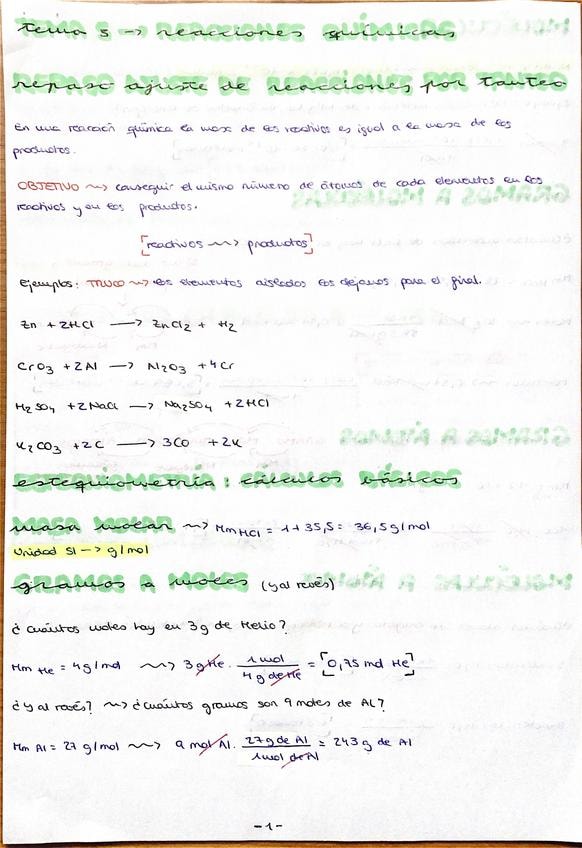 tema 5 -> reacciones químicas
repaso ajuste de reacciones por tanteo
En una reacción química la masa de los reactivos es igual a la masa de los
productos.
OBJETIVO ~> conseguir el mismo número de átomos de cada elementos en los
reactivos y en los productos.
[reactivos ~> productos]
Ejemplos: TRUCO ~> los elementos aislados los dejamos para el final.
Zn + 2HCl —> ZnCl2 + H2
CrO3 + 2Al —> Al2O3 + 4Cr
H2SO4 + 2NaCl —> Na2SO4 + 2HCl
K2CO3 + 2C —> 3CO + 2K
estequiometría: cálculos básicos
masa molar ~> Mm HCl = 1+35,5 = 36,5 g/mol
Unidad SI —> g/mol
gramos a moles (y al revés)
¿Cuántos moles hay en 3g de Helio?
Mm He = 4g/mol ~> 3 g He · 1 mol / 4 g de He = [0,75 mol He]
¿y al revés? ~> ¿cuántos gramos son 9 moles de Al?
Mm Al = 27 g/mol ~> 9 mol Al · 27g de Al / 1 mol de Al = 243 g de Al
-1-